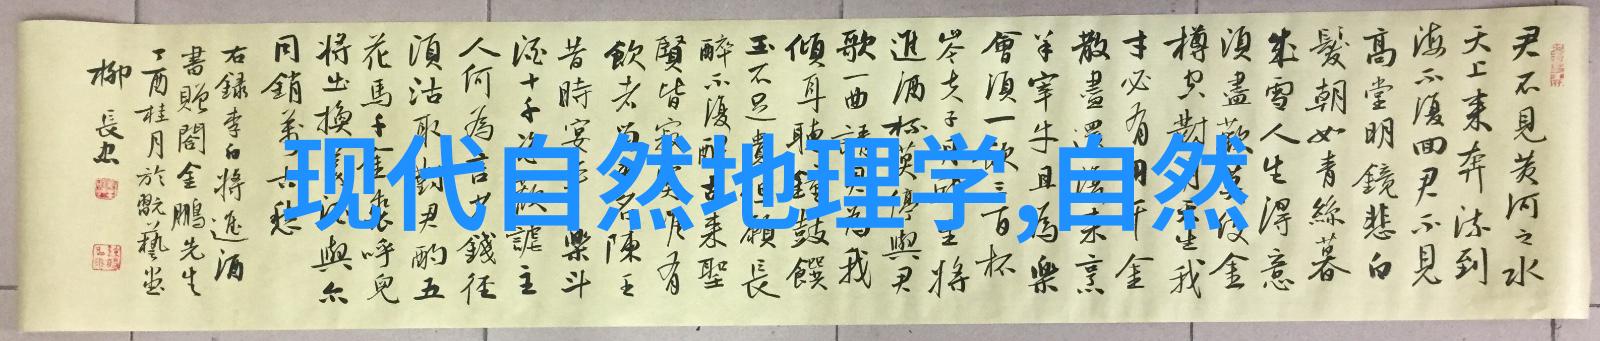 君不見黄河之水
天上來奔流到
海不復回君不見
高堂明鏡悲白
髮朝如青絲暮
成雪人生得意
須盡歡莫使金
樽空對月天生我
才必有用千金
散盡還復來烹
羊宰牛且為樂
會須一飲三百杯
岑夫子丹丘生將
進酒杯莫停與君
歌一曲請君為我
傾耳聽鐘鼓饌
玉不足貴但願長
醉不復醒古來聖
賢皆寂寞有
飲者留名陳王
昔時宴平樂斗
酒十千恣歡謔主
人何為言少錢徑
須沽取對君酌五
花馬千金裘呼兒
將出換美酒與尔
同銷萬古愁
右録李白將進酒
書贈閻金鵬先生
丁酉桂月於翫藝堂
柳長忠
现代自然地理学,自然